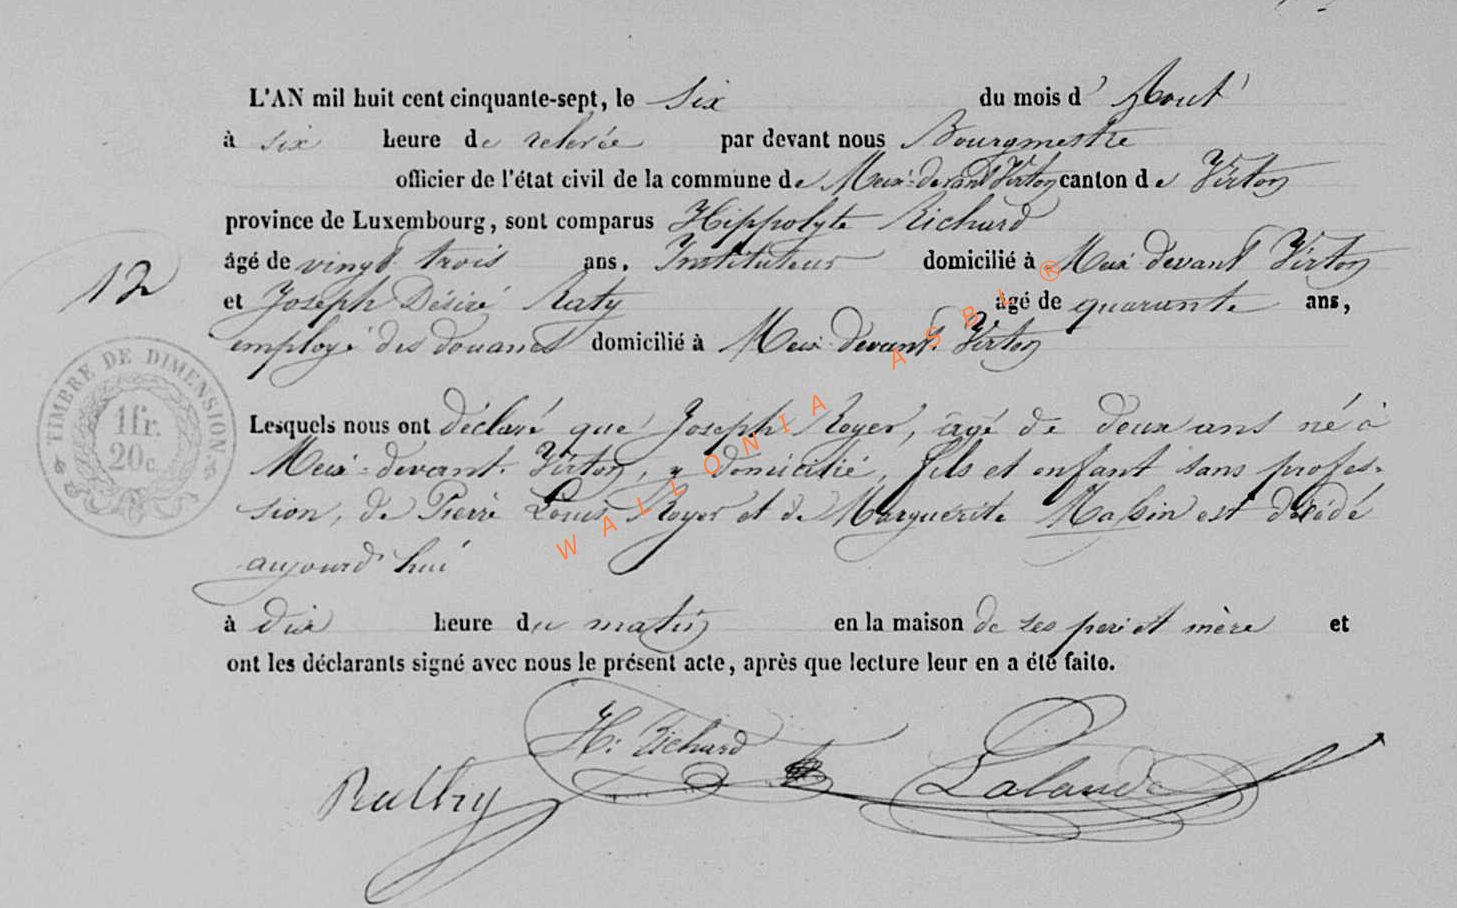 L'AN mil huit cent cinquante-sept, le six du mois d' Aout
à six heure de relevée par devant nous Bourgmestre
officier de l'état civil de la commune de Meix-devant Virton canton de Virton
province de Luxembourg, sont comparus Hippolyte Richard
âgé de vingt trois ans, Instituteur domicilié à Meix devant Virton
12
et Joseph Désiré Raty âgé de quarante ans,
employé des douanes domicilié à Meix devant Virton
TIMBRE DE DIMENSION.
1fr.
20c.
Lesquels nous ont déclaré que Joseph Royer, âgé de deux ans né à
Meix-devant-Virton, y domicilié, fils et enfant sans profes-
sion, de Pierre Louis Royer et de Marguerite Massin est décédé
aujourd'hui
à dix heure du matin en la maison de ses père et mère et
ont les déclarants signé avec nous le présent acte, après que lecture leur en a été faite.
H. Richard
Lalande
WALLONIA ASBL ®